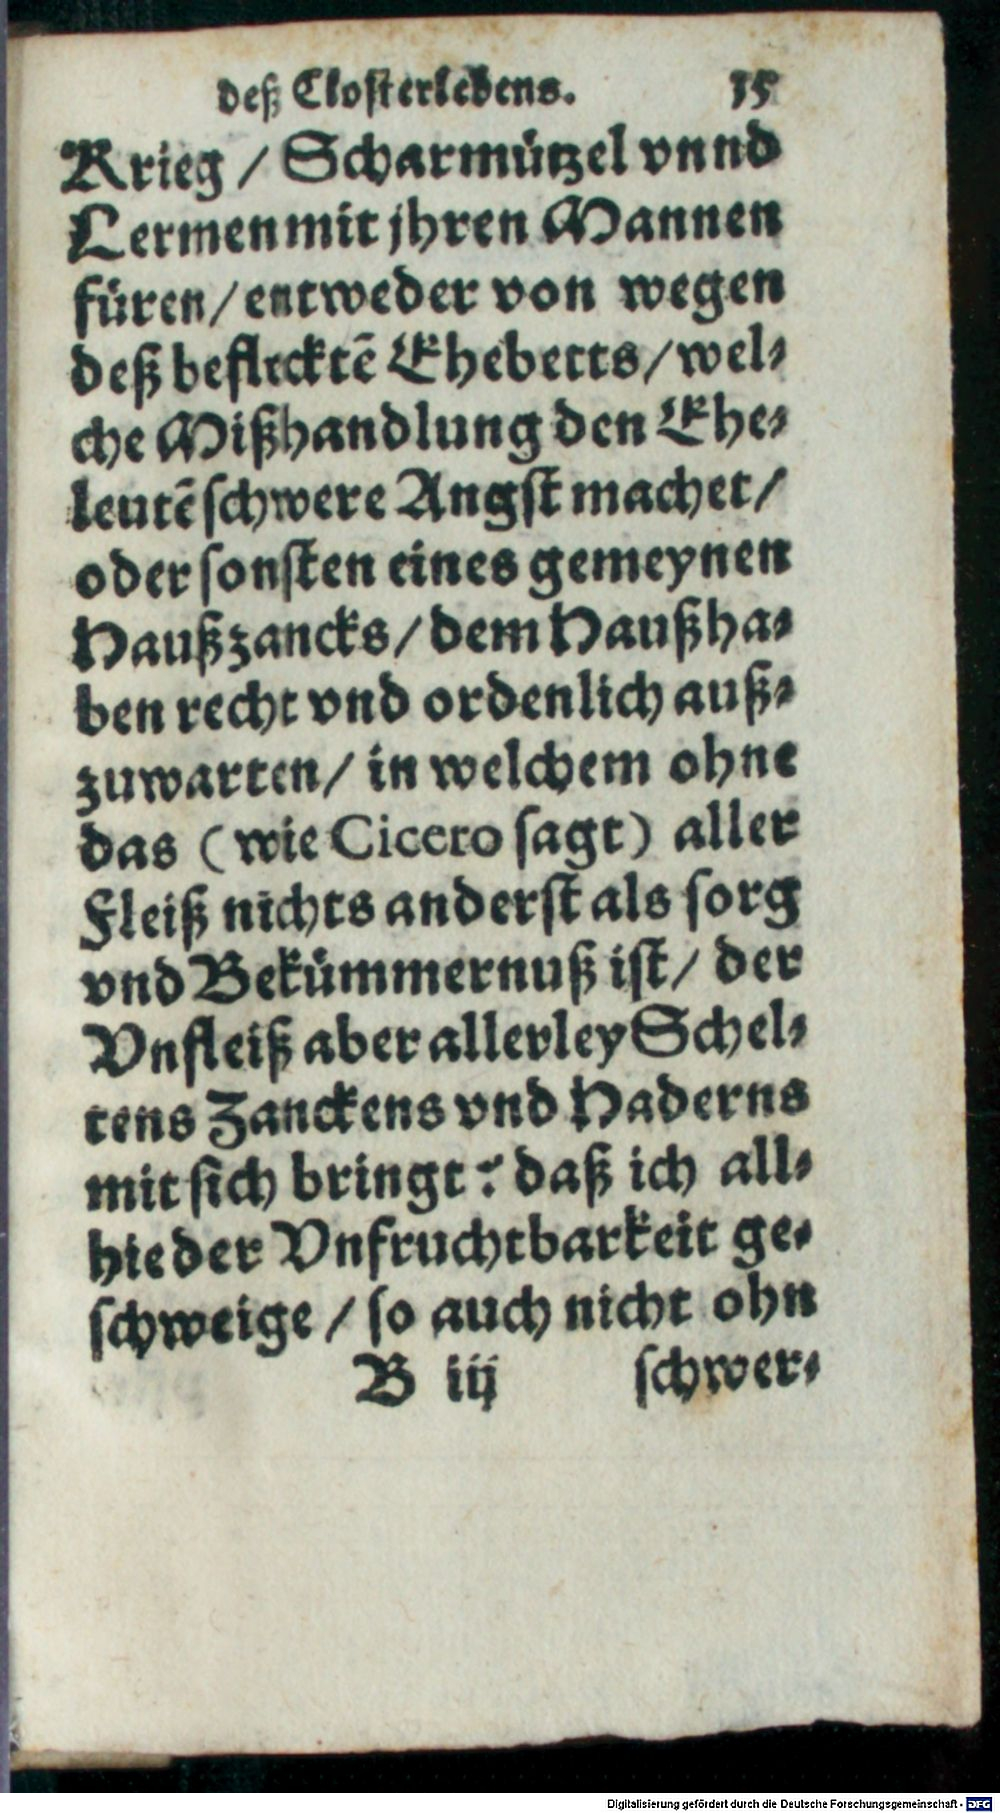 deß Closterlebens. 15
Krieg / Scharmützel vnnd
Lermen mit jhren Mannen
füren / entweder von wegen
deß beflecktē Ehebetts / wel⸗
che Mißhandlung den Ehe⸗
leutē schwere Angst machet /
oder sonsten eines gemeynen
Haußzancks / dem Haußha⸗
ben recht vnd ordenlich auß⸗
zuwarten / in welchem ohne
das (wie Cicero sagt) aller
Fleiß nichts anderst als sorg
vnd Bekümmernuß ist / der
Vnfleiß aber allerley Schel⸗
tens Zanckens vnd Haderns
mit sich bringt: daß ich all⸗
hie der Vnfruchtbarkeit ge⸗
schweige / so auch nicht ohn
B iij schwer⸗
Digitalisierung gefördert durch die Deutsche Forschungsgemeinschaft - DFG